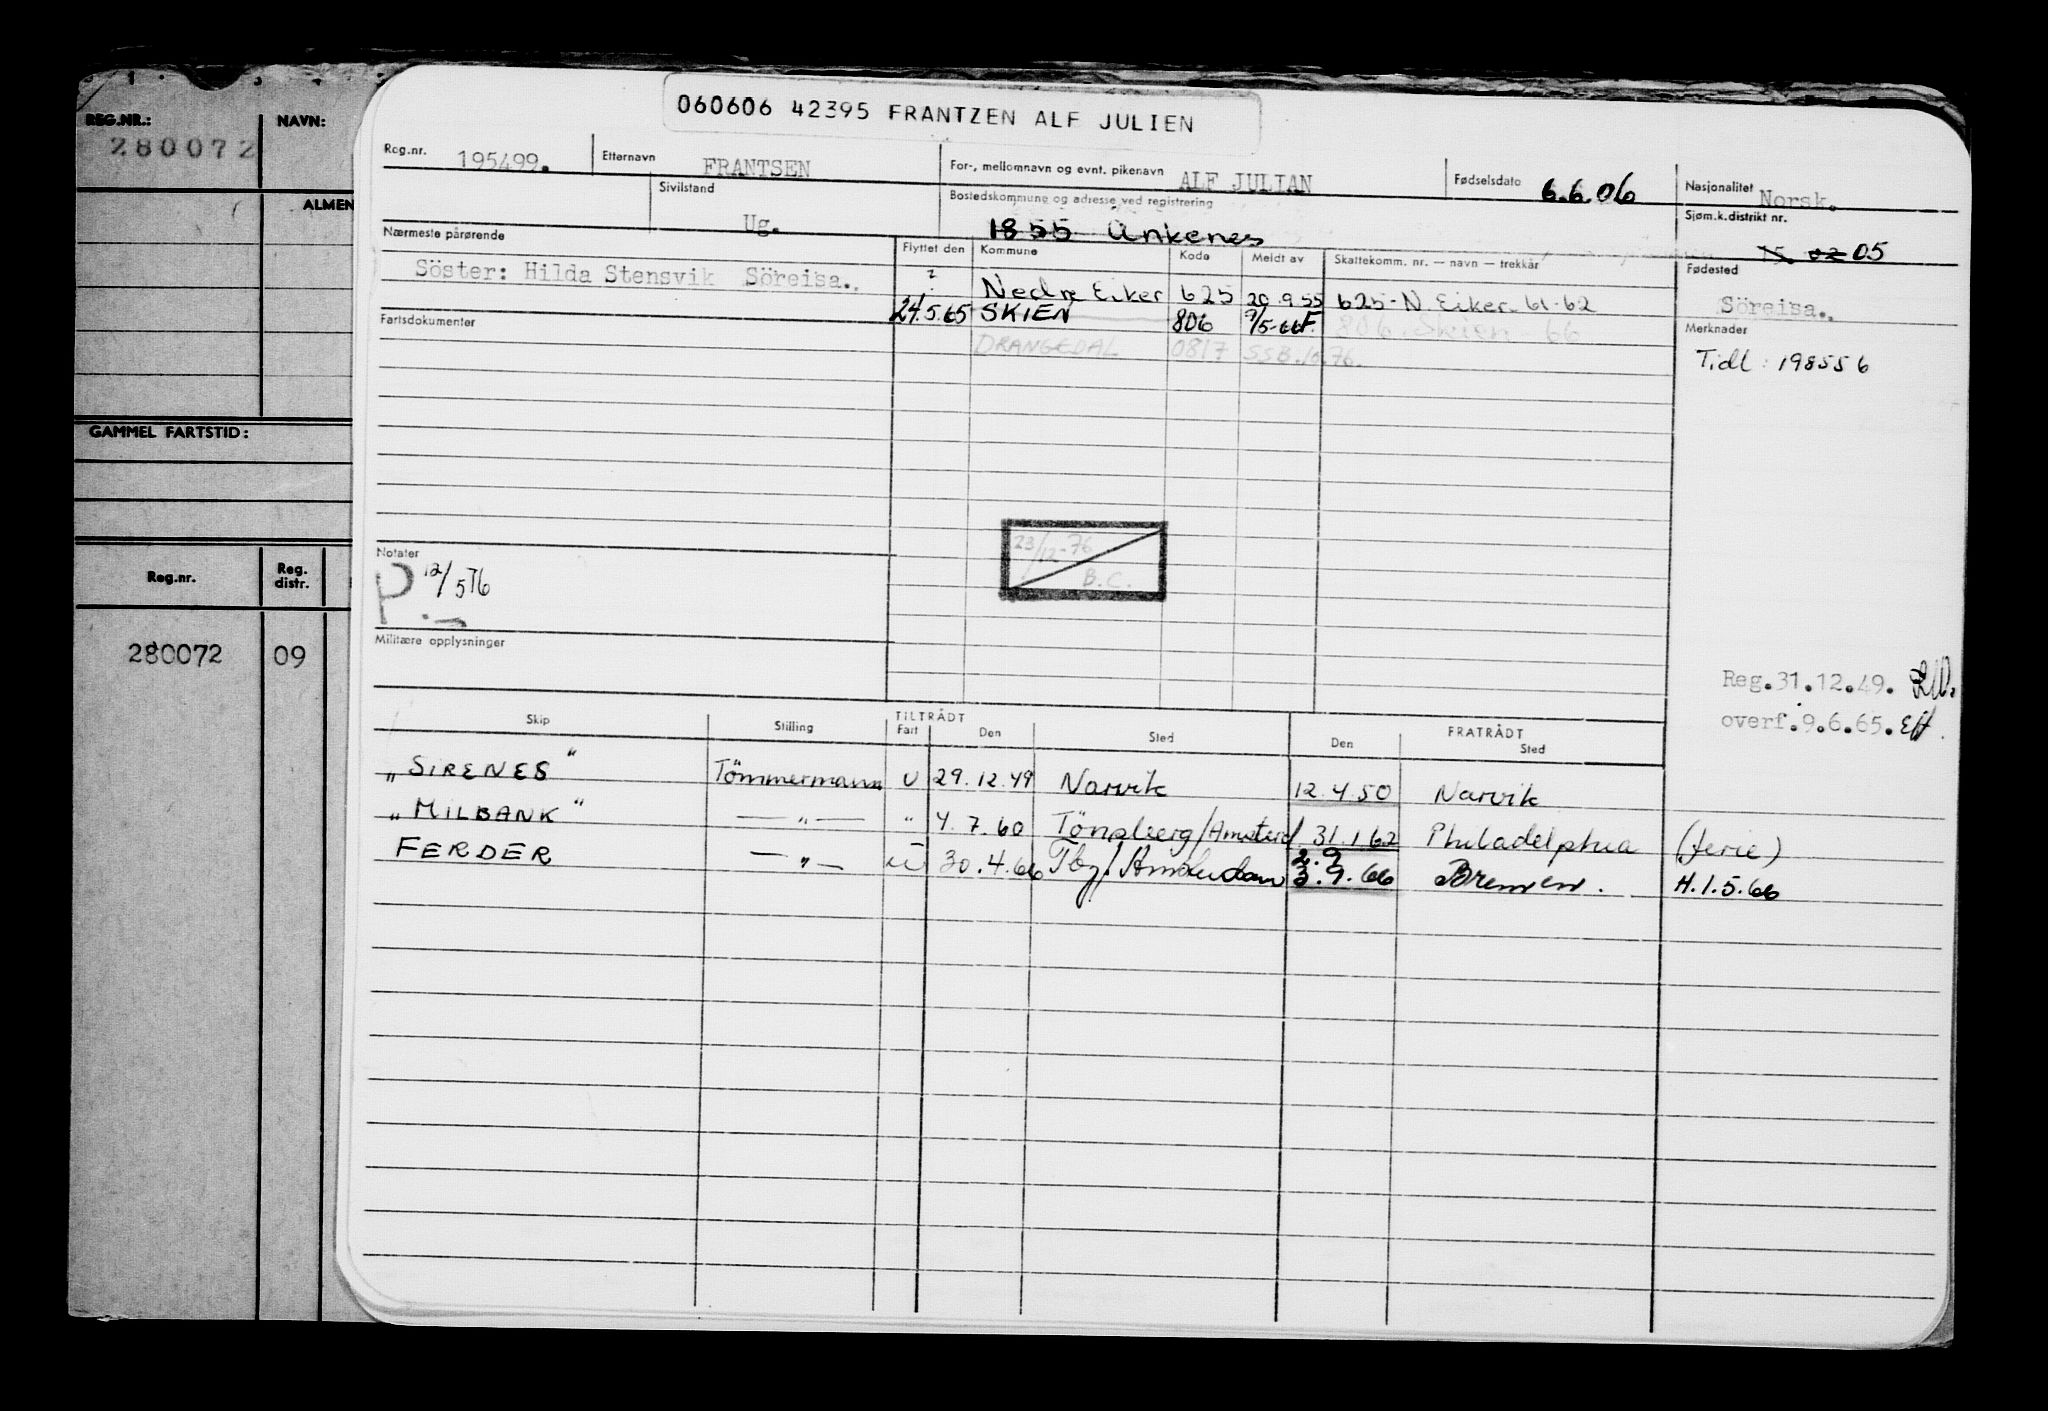 REG.NR.: NAVN:
280072
ALMEN
GAMMEL FARTSTID:
Reg.nr. Reg. distr.
280072 09
060606 42395 FRANTZEN ALF JULIEN
Reg.nr. 195499. Etternavn FRANTSEN For-, mellomnavn og evnt. pikenavn ALF JULIAN Fødselsdato 6.6.06 Nasjonalitet Norsk.
Sivilstand Ug. Bostedskommune og adresse ved registrering 1855 Ankenes Sjøm.k.distrikt nr. 15. 02 05
Nærmeste pårørende Flyttet den Kommune Kode Meldt av Skattekomm. nr. — navn — trekkår Fødested
Söster: Hilda Stensvik Söreisa. ? Nedre Eiker 625 20.9.55 625-N. Eiker 61-62 Söreisa.
Fartsdokumenter 24.5.65 SKIEN 806 9/5-66F. 806. Skien 66 Merknader
DRANGEDAL 0817 SSB.10.76. Tidl: 198556
23/12-76
B.C.
Notater
P. 12/576
Militære opplysninger
Reg.31.12.49.
overf.9.6.65.
Skip Stilling TILTRÅDT Fart Den Sted FRATRÅDT Den Sted
"SIRENES" Tömmermann U 29.12.49 Narvik 12.4.50 Narvik
"MILBANK" —"— " 4.7.60 Tönsberg/Amsterd 31.1.62 Philadelphia (ferie)
FERDER —"— U 30.4.66 Tbg/Amsterdam 2.9 3.9.66 Bremen. H.1.5.66